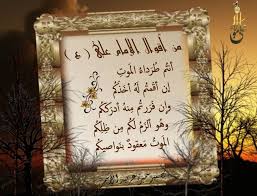 من أقوال الإمام علي (ع)
أنتم طُرَداءُ الموتِ
إن أقمتُم لهُ أخذكُم
وإن فررتُم منهُ أدرككُم
وهو ألزمُ لكُم مِن ظِلِّكُم
الموتُ معقودٌ بنواصيكُم